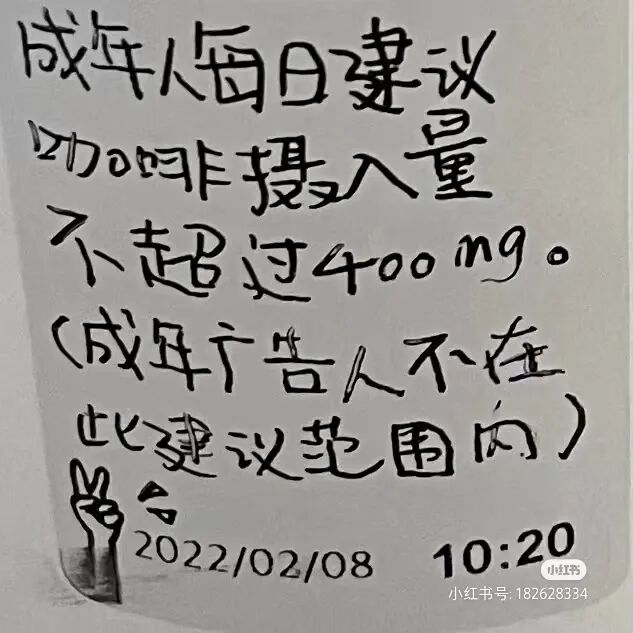 成年人每日建议
咖啡摄入量
不超过400mg。
(成年广告人不在
此建议范围内)
2022/02/08 10:20
小红书
小红书号: 182628334